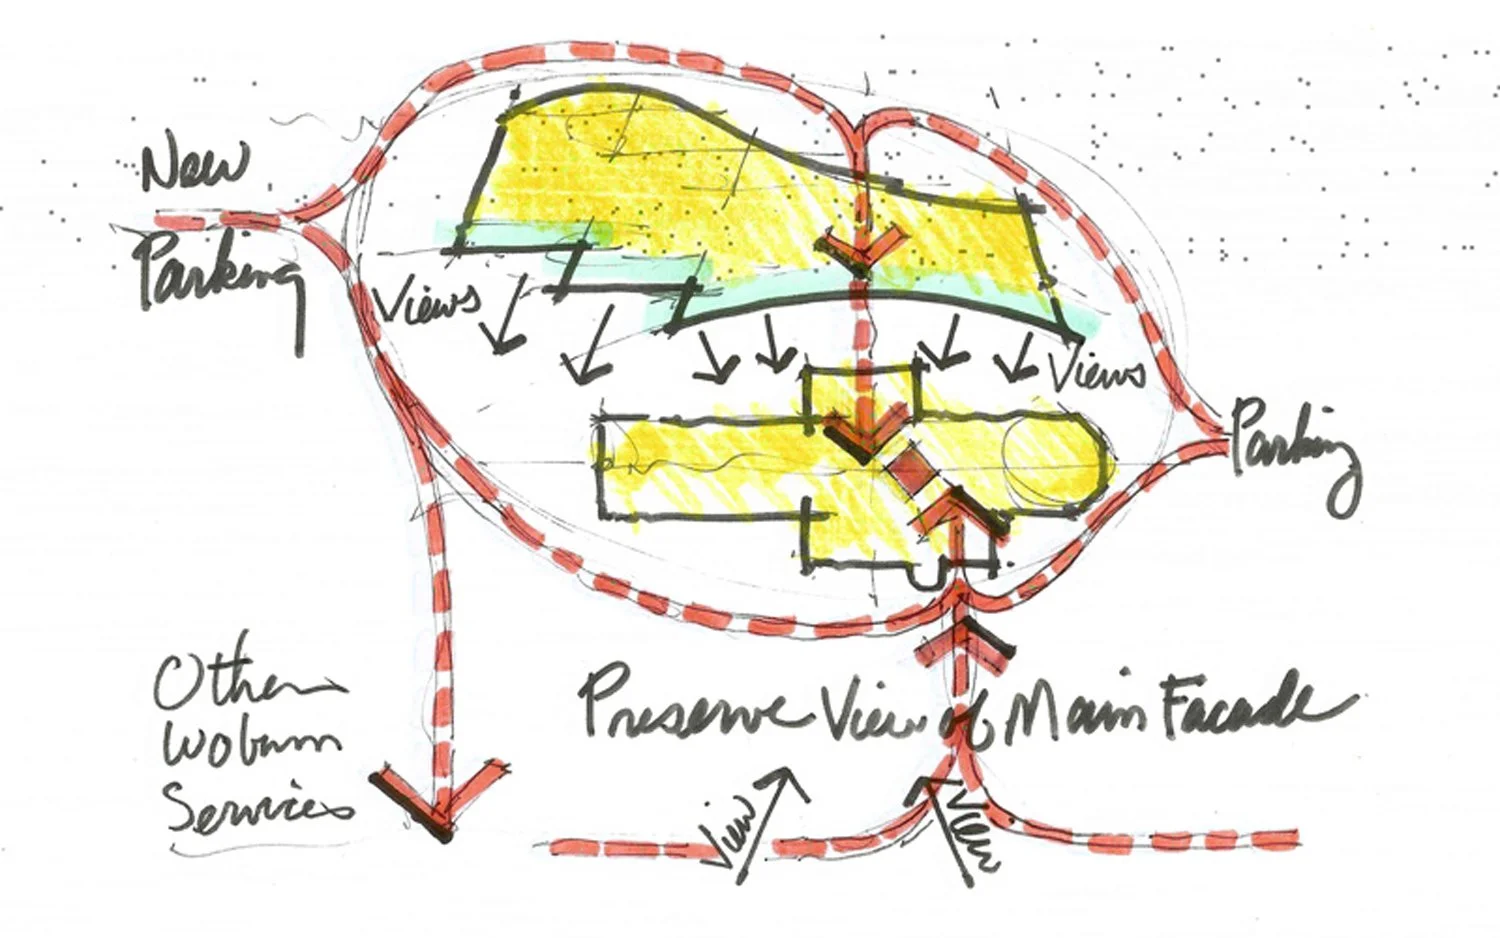 New
Parking
Views
Views
Parking
Other
Woburn
Services
Preserve View of Main Facade
View
View